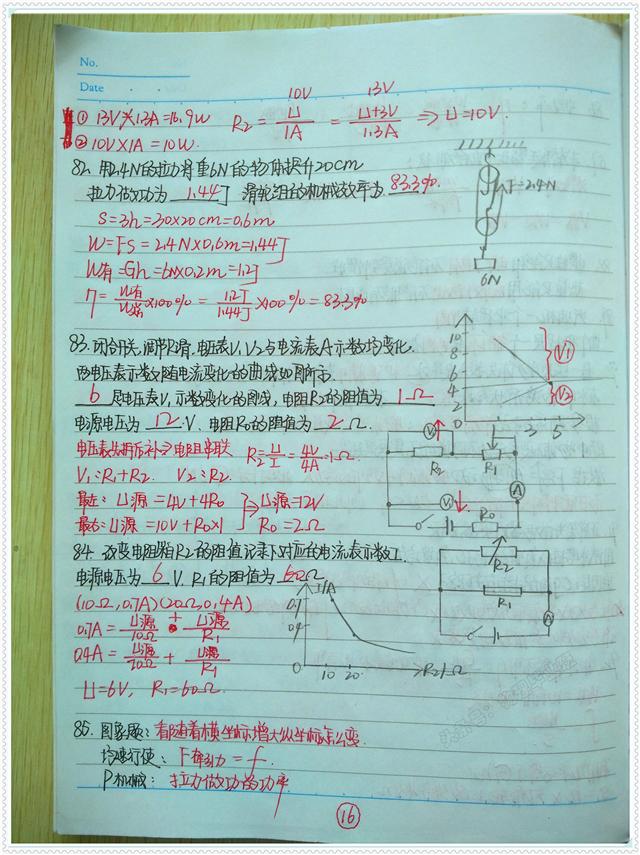 No.
Date
① 13V×1.3A=16.9W
② 10V×1A=10W.
10V 13V
R2 = U/1A = U+3V/1.3A ⇒ U=10V.
82. 用2.4N的拉力将重6N的物体提升20cm
拉力做功为 1.44J 滑轮组的机械效率为 83.3%.
S=3h=3×20×20cm=0.6m
W=FS=2.4N×0.6m=1.44J
W有=Gh=6N×0.2m=1.2J
η=W有/W总×100%=1.2J/1.44J×100%=83.3%
F=2.4N
6N
83. 闭合开关,调节R滑,电压表V1,V2与电流表A示数均变化.
两电压表示数随电流变化的曲线如图所示.
b 是电压表V1示数变化的图线,电阻R2的阻值为 1Ω
电源电压为 12 V、电阻R0的阻值为 2 Ω.
V1:R1+R2. V2:R2
R2=U/I=4V/4A=1Ω
最左:U源=4V+4R0
最右:U源=10V+R0×1
⇒U源=12V
R0=2Ω
10
8
6
4
2
0
3 5
V1
V2
V
R2
R1
A
V
R0
84. 改变电阻箱R2的阻值记录下对应的电流表示数I.
电源电压为 6 V, R1的阻值为 60Ω
(10Ω,0.7A)(20Ω,0.4A)
0.7A=U源/10Ω+U源/R1
0.4A=U源/20Ω+U源/R1
U=6V, R1=60Ω
I/A
0.7
0.4
0
10 20
R2/Ω
R2
R1
A
85. 图象题:看随着横坐标增大纵坐标怎么变.
匀速行使: F牵引力=f.
P机械: 拉力做功的功率
16